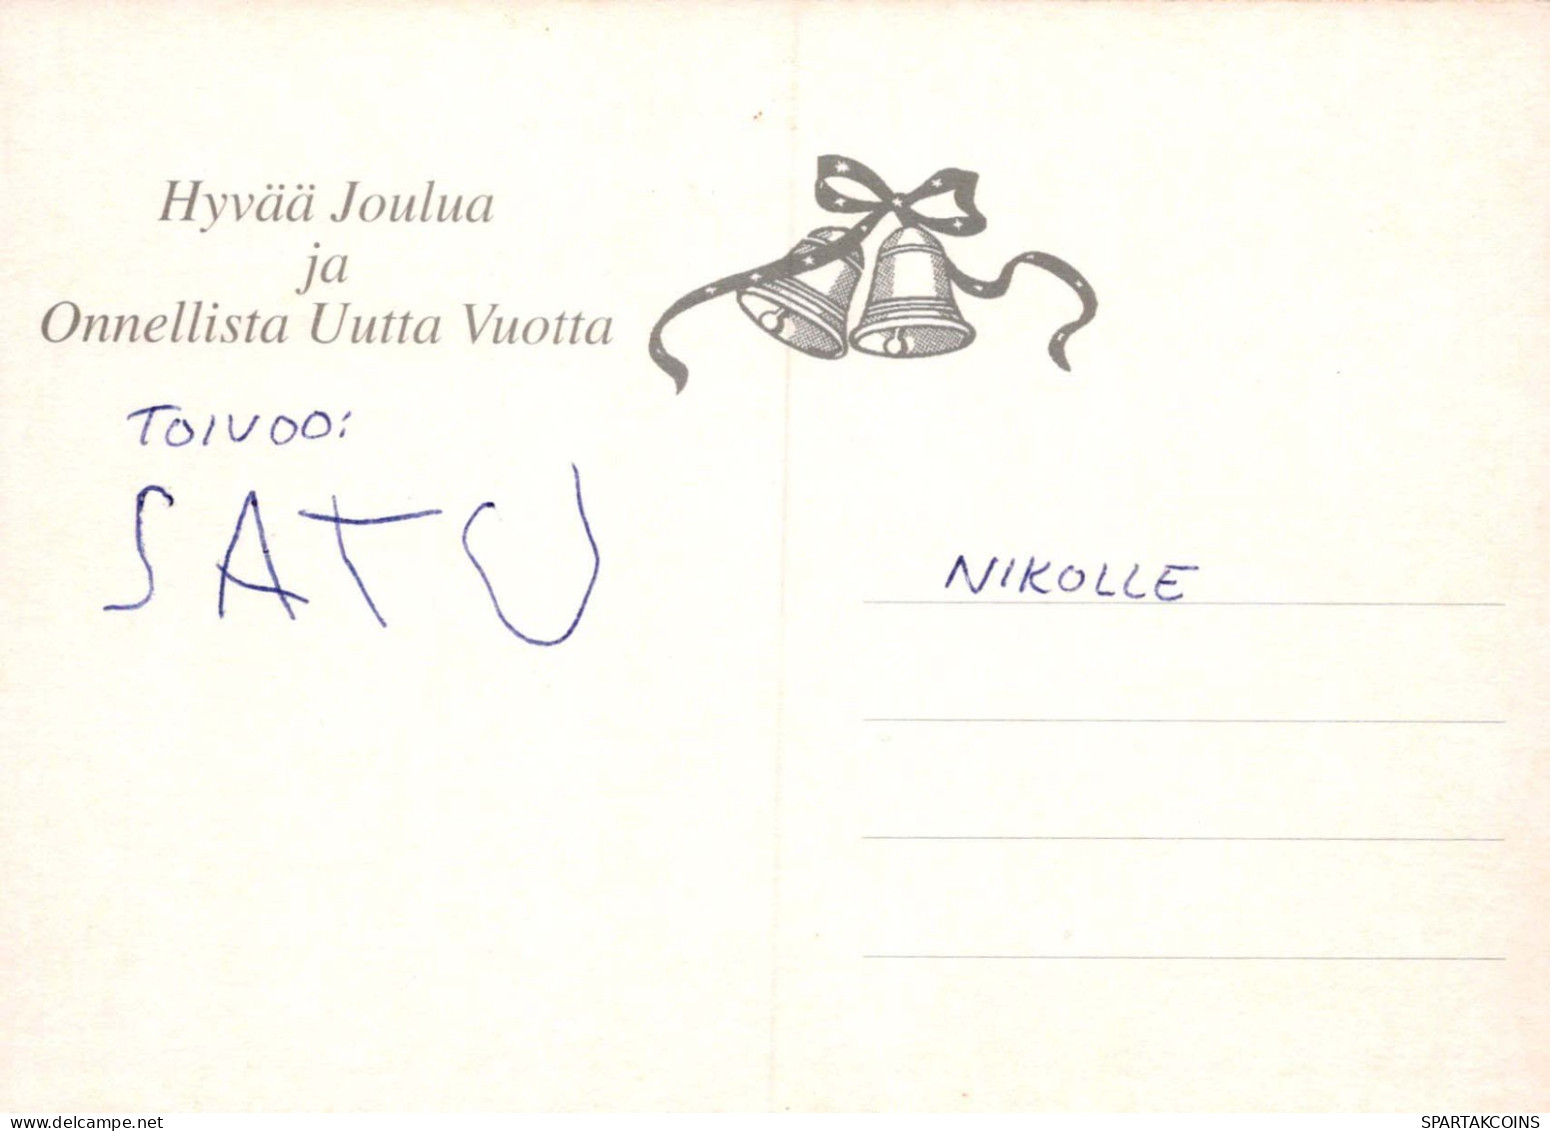 Hyvää Joulua
ja
Onnellista Uutta Vuotta
TOIVOO:
SATU
NIKOLLE
delcampe.net
SPARTAKCOINS